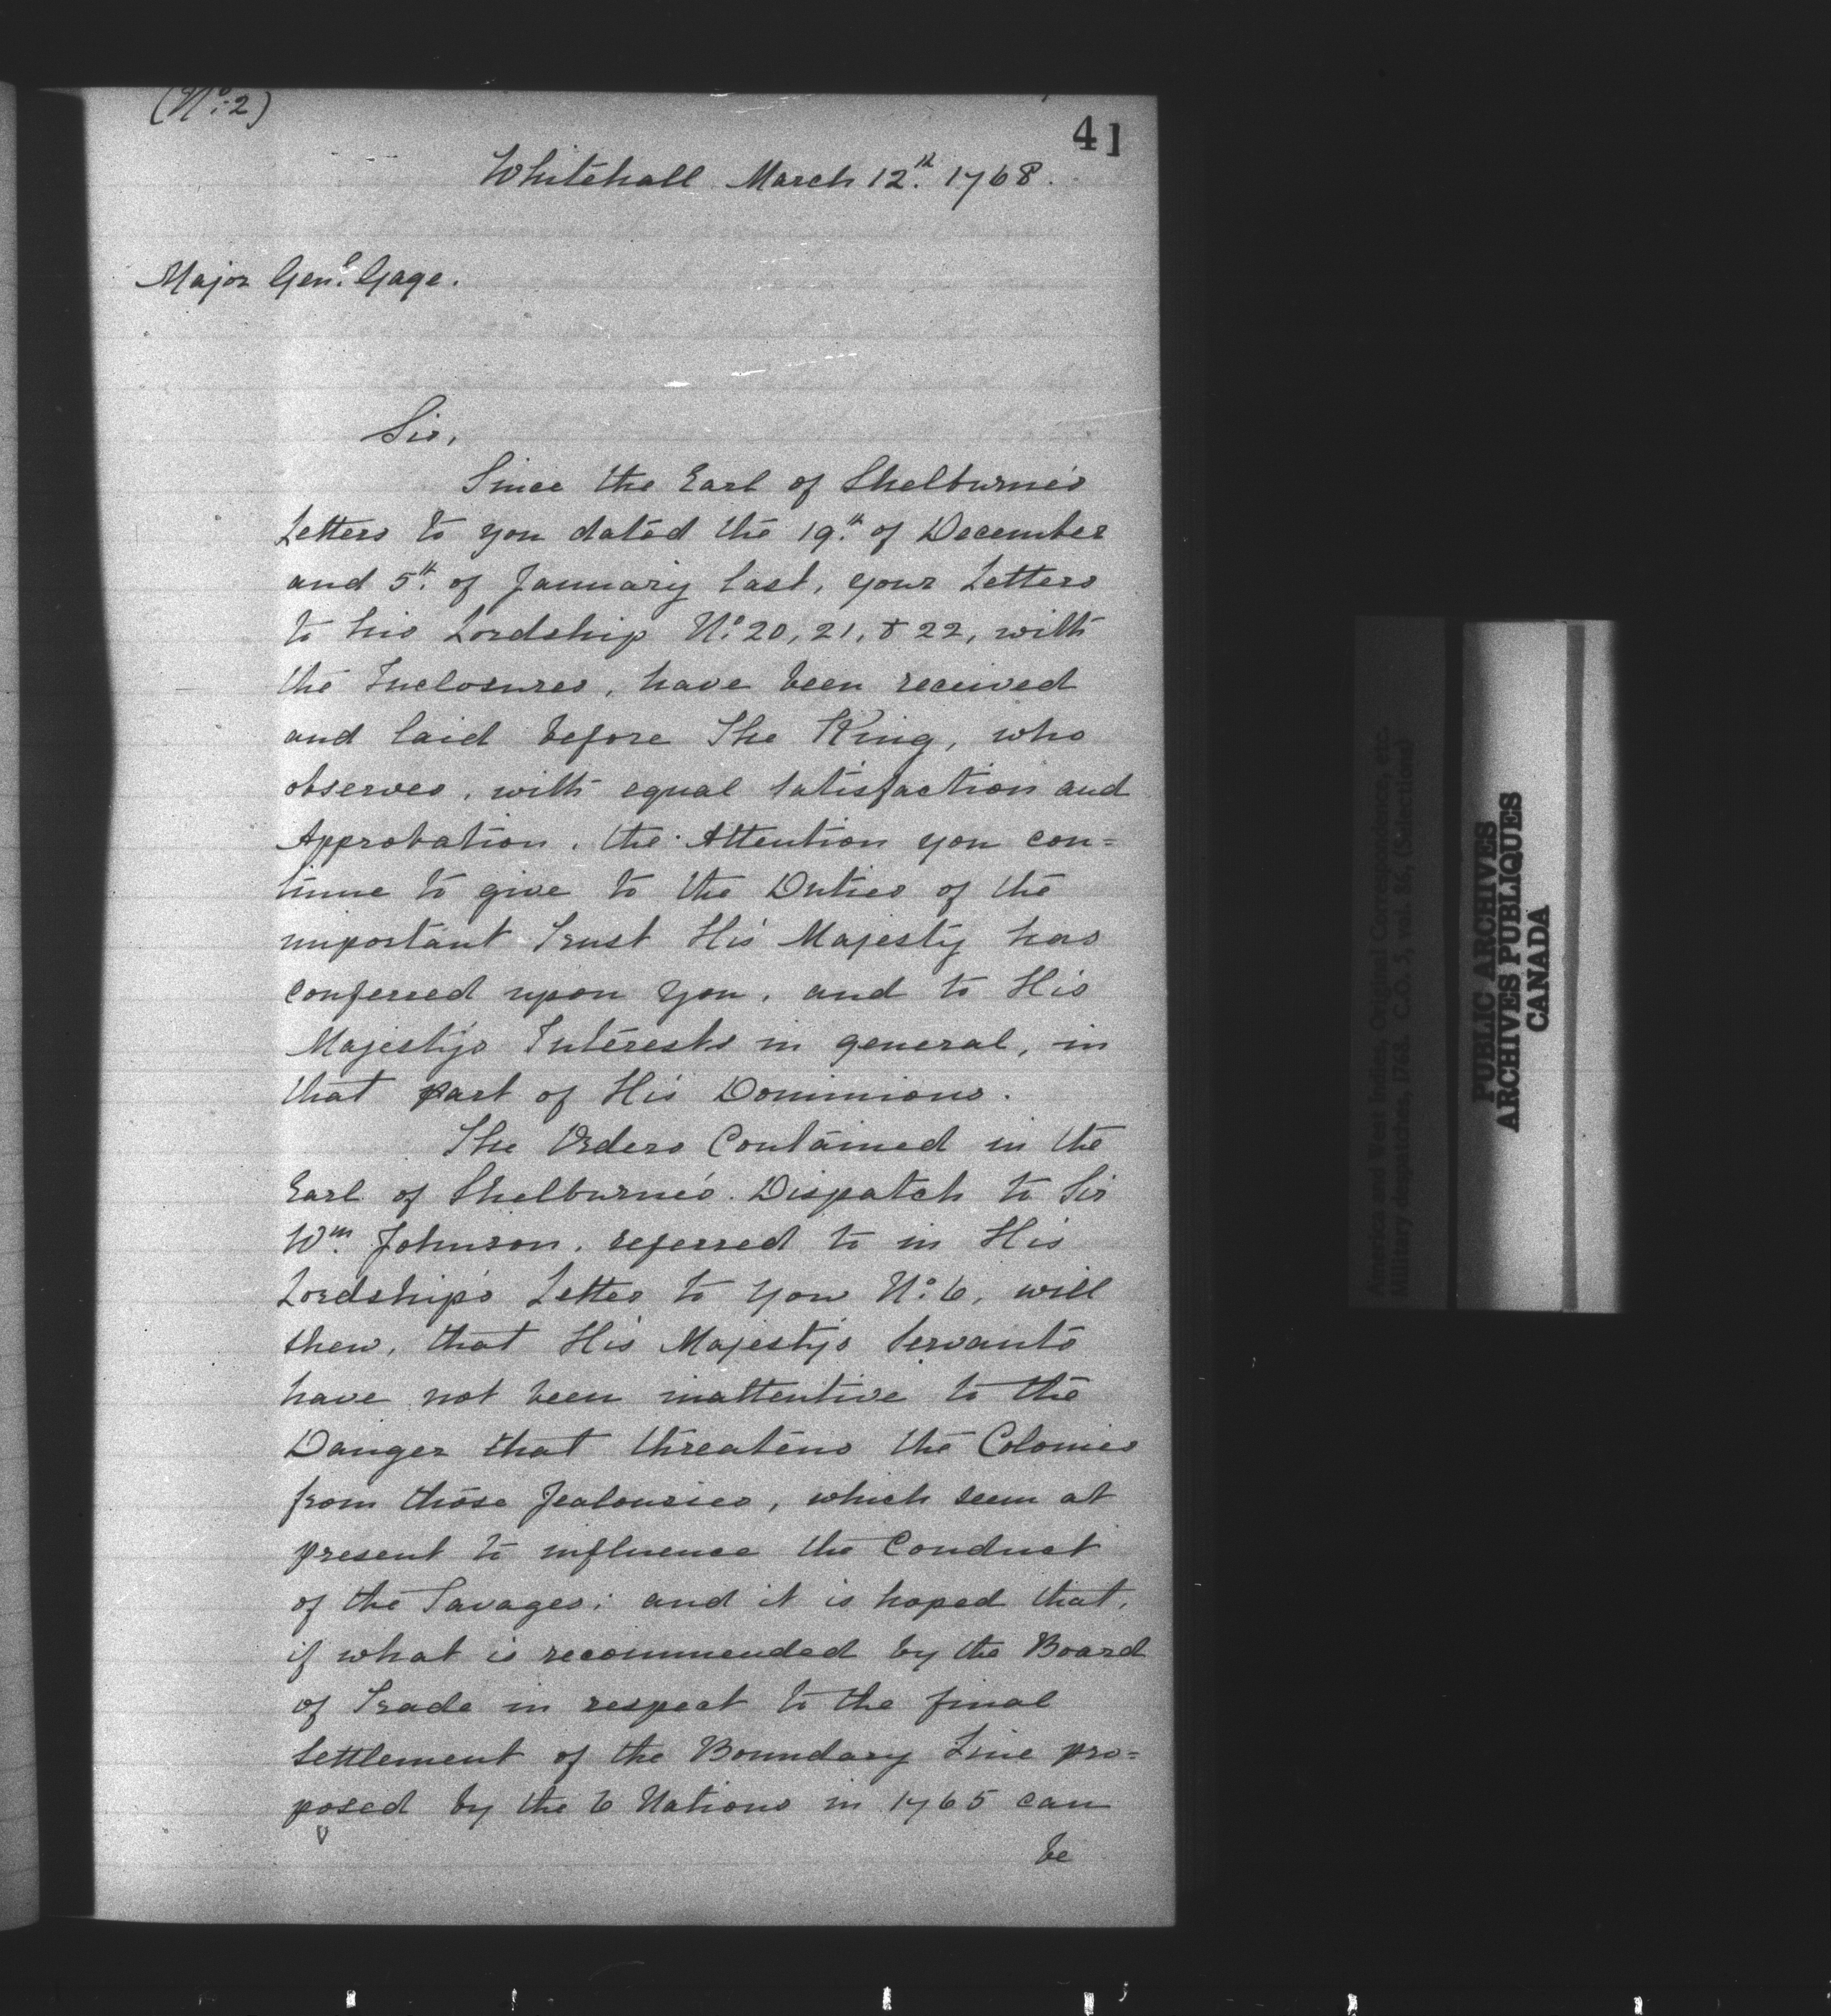 (No. 2)
41
Whitehall March 12th. 1768.
Major Genl. Gage.
Sir,
Since the Earl of Shelburne's
Letters to you dated the 19th. of December
and 5th. of January last, your Letters
to his Lordship No. 20, 21, & 22, with
the Inclosures, have been received
and laid before The King, who
observes, with equal satisfaction and
Approbation, the Attention you con=
tinue to give to the Duties of the
important Trust His Majesty has
conferred upon you, and to His
Majesty's Interests in general, in
that part of His Dominions.
The Orders Contained in the
Earl of Shelburne's Dispatch to Sir
Wm. Johnson, referred to in His
Lordship's Letter to you No. 6, will
shew, that His Majesty's Servants
have not been inattentive to the
Danger that threatens the Colonies
from those Jealousies, which seem at
present to influence the Conduct
of the Savages; and it is hoped that,
if what is recommended by the Board
of Trade in respect to the final
Settlement of the Boundary Line pro=
posed by the 6 Nations in 1765 can
be
America and West Indies, Original Correspondence, etc.
Military despatches, 1768. C.O. 5, vol. 86, (Selections)
PUBLIC ARCHIVES
ARCHIVES PUBLIQUES
CANADA